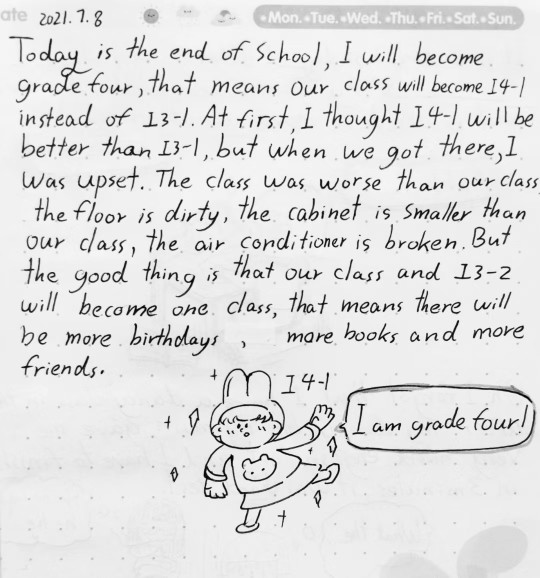 ate 2021.7.8 •Mon.•Tue.•Wed.•Thu.•Fri.•Sat.•Sun.
Today is the end of School, I will become
grade four, that means our class will become I4-1
instead of I3-1. At first, I thought I4-1 will be
better than I3-1, but when we got there, I
was upset. The class was worse than our class
the floor is dirty, the cabinet is smaller than
our class, the air conditioner is broken. But
the good thing is that our class and I3-2
will become one class, that means there will
be more birthdays, more books and more
friends.
I4-1
I am grade four!